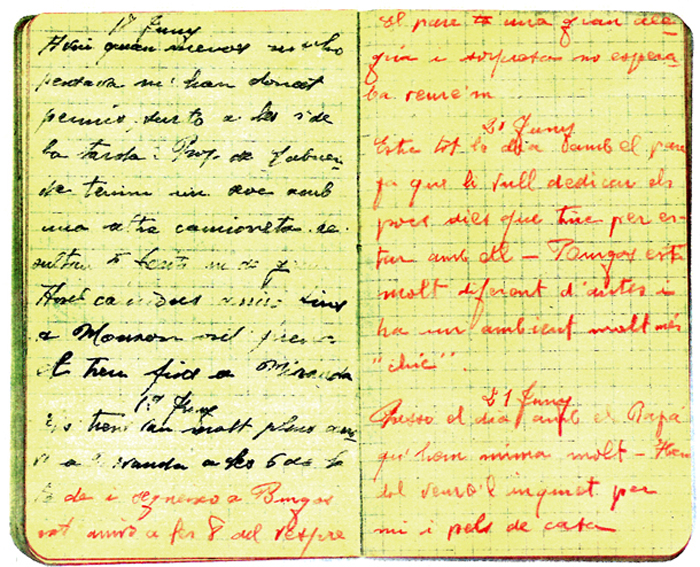 18 Juny
Avui quan menos m'ho
pensava m'han donat
permis, surto a les 5 de
la tarda. Prop de
de tenim un xoc amb
una altre camioneta re-
Hoste
a Monson
el tren fins a Miranda
19 Juny
Els trens van molt plens
a Miranda a les 6 de la
tarde i segueixo a Burgos
ont arribo a les 8 del vespre
El pare te una gran ale-
gria i sorpresa no espera-
ba veure'm
20 Juny
Estic tot lo dia amb el pare
ja que li vull dedicar els
pocs dies que tinc per es-
tar amb ell — Burgos està
molt diferent d'antes i
ha un ambient molt més
"chic".
21 Juny
Passo el dia amb el Papá
qu'hem mima molt —
dol veure'l inquiet per
mi i pels de casa